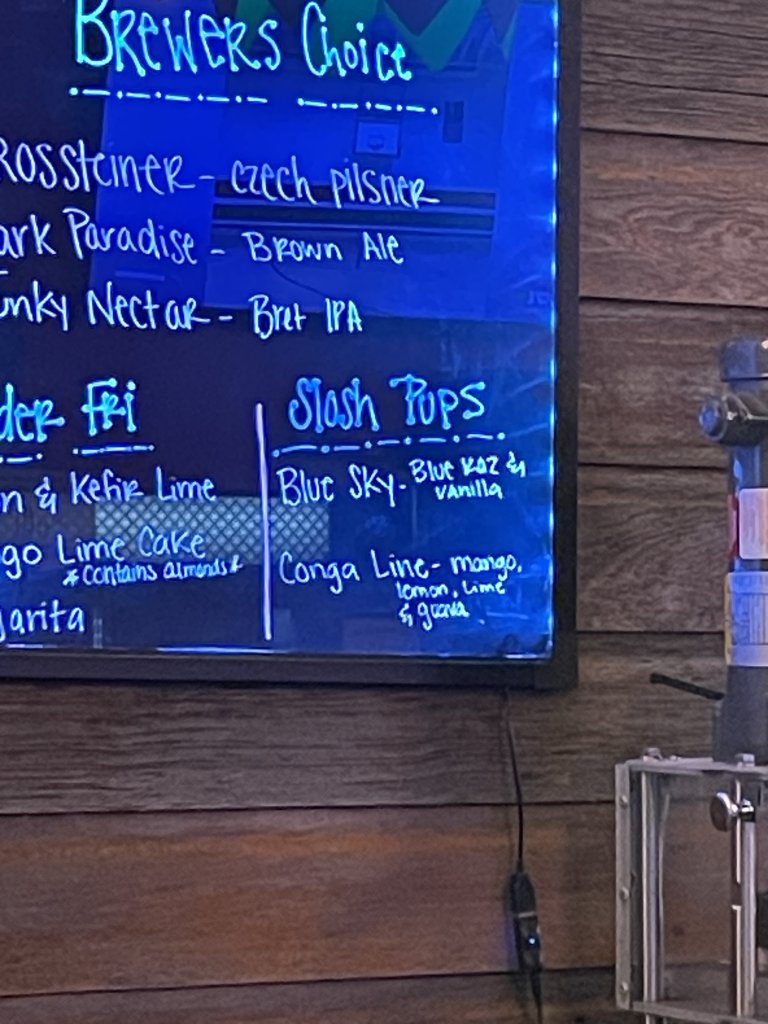 BREWERS CHOICE
ROSSTEINER - CZECH PILSNER
ark Paradise - BROWN ALE
unky Nectar - Bret IPA
der Fri
n & Kefir Lime
go Lime Cake
*Contains almonds*
garita
Slush Pups
Blue Sky - Blue Raz &
Vanilla
Conga Line - mango,
lemon, lime
& guava